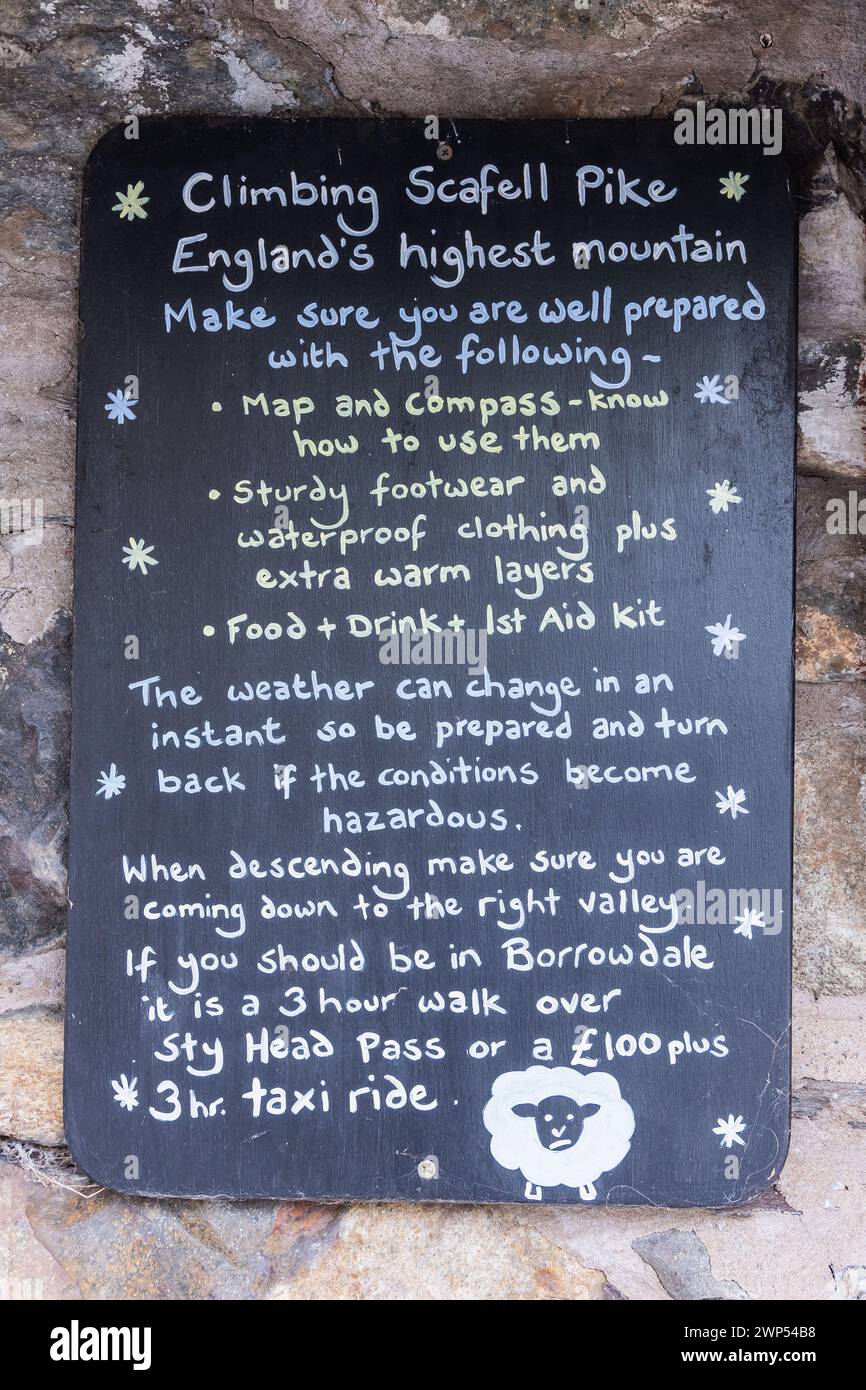 Climbing Scafell Pike
England's highest mountain
Make sure you are well prepared
with the following -
• Map and Compass - know
how to use them
• Sturdy footwear and
waterproof clothing plus
extra warm layers
• Food + Drink + 1st Aid Kit
The weather can change in an
instant so be prepared and turn
back if the conditions become
hazardous.
When descending make sure you are
coming down to the right valley.
If you should be in Borrowdale
it is a 3 hour walk over
Sty Head Pass or a £100 plus
3 hr. taxi ride.
alamy
Image ID: 2WP54B8
www.alamy.com